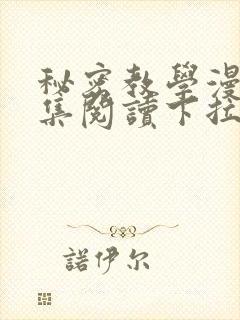 秘密教學漫
集閱讀下拉
諾伊尔